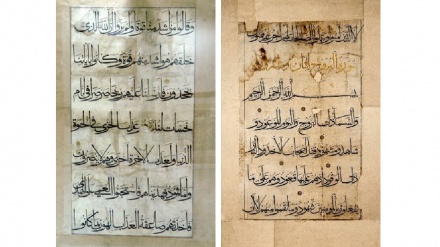 بسم الله الرحمن الرحيم
والسماء ذات البروج واليوم الموعود و
شاهد ومشهود قتل اصحاب الاخدود النار
ذات الوقود اذ هم عليها قعود وهم على ما
يفعلون بالمؤمنين شهود وما نقموا منهم الا
وقالوا من اشد منا قوة اولم يروا ان الله الذي
خلقهم هو اشد منهم قوة وكانوا باياتنا
يجحدون فارسلنا عليهم ريحا صرصرا في ايام
نحسات لنذيقهم عذاب الخزي في الحيوة
الدنيا ولعذاب الاخرة اخزى وهم لا ينصرون
واما ثمود فهديناهم فاستحبوا العمى على
فاخذتهم صاعقة العذاب الهون بما كانوا